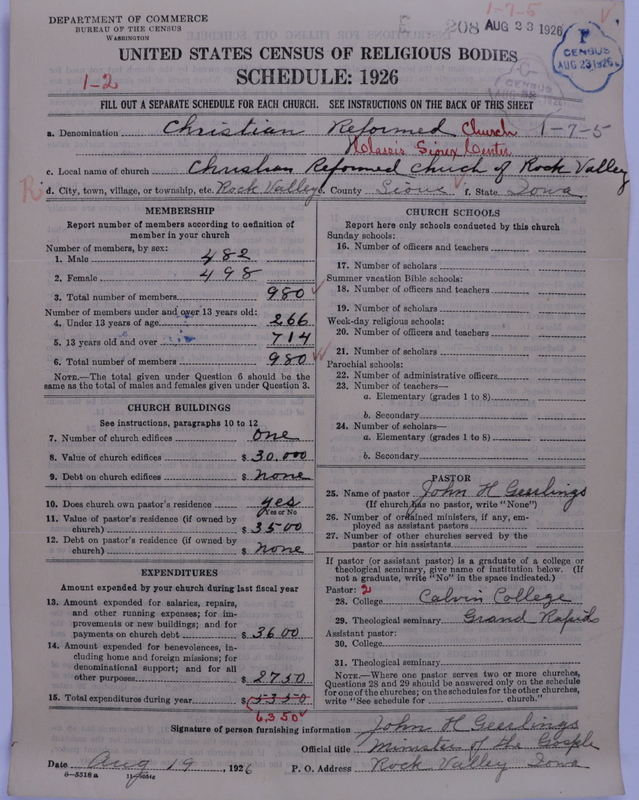 1-7-5
DEPARTMENT OF COMMERCE
BUREAU OF THE CENSUS
WASHINGTON
E 208 AUG 23 1926
F
CENSUS
AUG 23 1926
UNITED STATES CENSUS OF RELIGIOUS BODIES
1-2
SCHEDULE: 1926
FILL OUT A SEPARATE SCHEDULE FOR EACH CHURCH. SEE INSTRUCTIONS ON THE BACK OF THIS SHEET
a. Denomination Christian Reformed Church 1-7-5
Classis Sioux Center
c. Local name of church Christian Reformed Church of Rock Valley
d. City, town, village, or township, etc. Rock Valley e. County Sioux f. State Iowa
MEMBERSHIP
Report number of members according to definition of
member in your church
Number of members, by sex:
1. Male 482
2. Female 498
3. Total number of members 980
Number of members under and over 13 years old:
4. Under 13 years of age 266
5. 13 years old and over 714
6. Total number of members 980
NOTE.—The total given under Question 6 should be the
same as the total of males and females given under Question 3.
CHURCH BUILDINGS
See instructions, paragraphs 10 to 12
7. Number of church edifices One
8. Value of church edifices $ 30.000
9. Debt on church edifices $ None
10. Does church own pastor's residence yes
Yes or No
11. Value of pastor's residence (if owned by
church) $ 3500
12. Debt on pastor's residence (if owned by
church) $ None
EXPENDITURES
Amount expended by your church during last fiscal year
13. Amount expended for salaries, repairs,
and other running expenses; for im-
provements or new buildings; and for
payments on church debt $ 3600
14. Amount expended for benevolences, in-
cluding home and foreign missions; for
denominational support; and for all
other purposes $ 2750
15. Total expenditures during year $ 5350
6350
CHURCH SCHOOLS
Report here only schools conducted by this church
Sunday schools:
16. Number of officers and teachers
17. Number of scholars
Summer vacation Bible schools:
18. Number of officers and teachers
19. Number of scholars
Week-day religious schools:
20. Number of officers and teachers
21. Number of scholars
Parochial schools:
22. Number of administrative officers
23. Number of teachers—
a. Elementary (grades 1 to 8)
b. Secondary
24. Number of scholars—
a. Elementary (grades 1 to 8)
b. Secondary
PASTOR
25. Name of pastor John H Geerlings
(If church has no pastor, write "None")
26. Number of ordained ministers, if any, em-
ployed as assistant pastors
27. Number of other churches served by the
pastor or his assistants
If pastor (or assistant pastor) is a graduate of a college or
theological seminary, give name of institution below. (If
not a graduate, write "No" in the space indicated.)
Pastor: 2
28. College Calvin College
29. Theological seminary Grand Rapids
Assistant pastor:
30. College
31. Theological seminary
NOTE.—Where one pastor serves two or more churches,
Questions 28 and 29 should be answered only on the schedule
for one of the churches; on the schedules for the other churches,
write "See schedule for church."
Signature of person furnishing information John H Geerlings
Official title Minister of the Gosple
Date Aug 19, 1926 P. O. Address Rock Valley Iowa
8-5318a